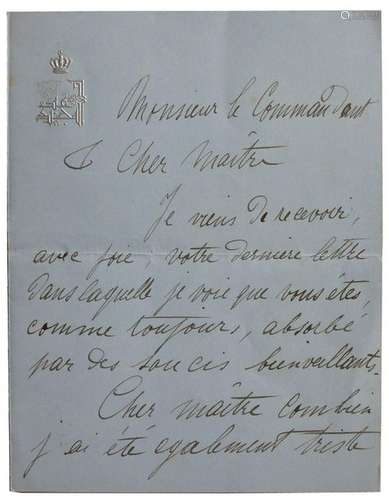 Monsieur le Commandant
& Cher Maître
Je viens de recevoir,
avec joie, votre derniere lettre
dans laquelle je voie que vous êtes,
comme toujours, absorbé
par des soucis bienveillants.
Cher maître combien
j'ai été egalement triste